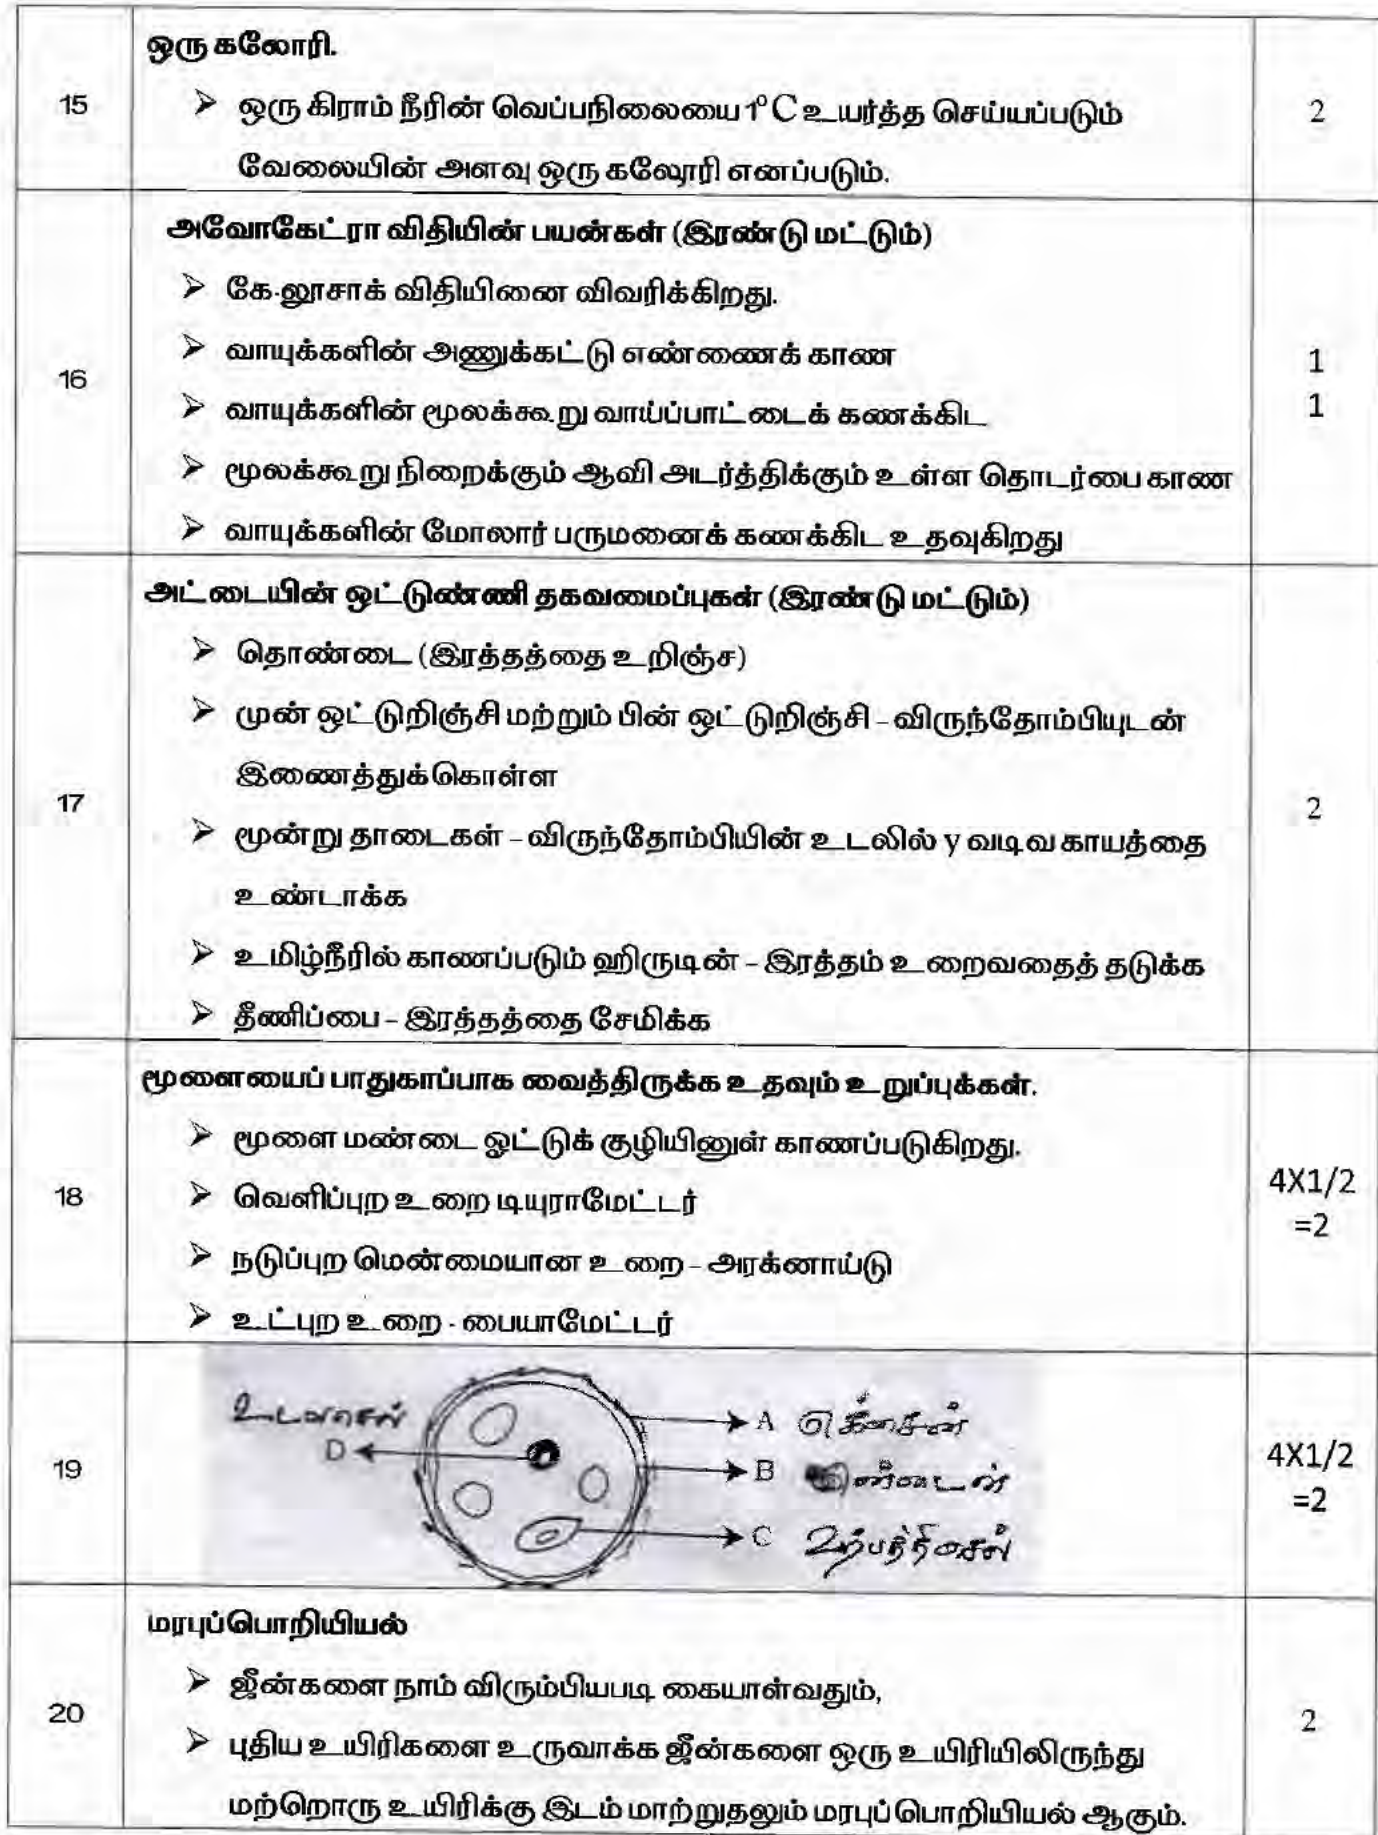 ஒரு கலோரி.
15
➢ ஒரு கிராம் நீரின் வெப்பநிலையை 1°C உயர்த்த செய்யப்படும்
2
வேலையின் அளவு ஒரு கலோரி எனப்படும்.
அவோகேட்ரா விதியின் பயன்கள் (இரண்டு மட்டும்)
➢ கே.லூசாக் விதியினை விவரிக்கிறது.
➢ வாயுக்களின் அணுக்கட்டு எண்ணைக் காண
1
16
➢ வாயுக்களின் மூலக்கூறு வாய்ப்பாட்டைக் கணக்கிட
1
➢ மூலக்கூறு நிறைக்கும் ஆவி அடர்த்திக்கும் உள்ள தொடர்பை காண
➢ வாயுக்களின் மோலார் பருமனைக் கணக்கிட உதவுகிறது
அட்டையின் ஒட்டுண்ணி தகவமைப்புகள் (இரண்டு மட்டும்)
➢ தொண்டை (இரத்தத்தை உறிஞ்ச)
➢ முன் ஒட்டுறிஞ்சி மற்றும் பின் ஒட்டுறிஞ்சி – விருந்தோம்பியுடன்
இணைத்துக்கொள்ள
17
➢ மூன்று தாடைகள் – விருந்தோம்பியின் உடலில் y வடிவ காயத்தை
2
உண்டாக்க
➢ உமிழ்நீரில் காணப்படும் ஹிருடின் – இரத்தம் உறைவதைத் தடுக்க
➢ தீனிப்பை – இரத்தத்தை சேமிக்க
மூளையைப் பாதுகாப்பாக வைத்திருக்க உதவும் உறுப்புக்கள்.
➢ மூளை மண்டை ஓட்டுக் குழியினுள் காணப்படுகிறது.
18
➢ வெளிப்புற உறை டியுராமேட்டர்
4X1/2
=2
➢ நடுப்புற மென்மையான உறை – அரக்னாய்டு
➢ உட்புற உறை - பையாமேட்டர்
உடலசெல்
D
A எக்சைன்
19
B இன்டைன்
4X1/2
=2
C உற்பத்திசெல்
மரபுப்பொறியியல்
➢ ஜீன்களை நாம் விரும்பியபடி கையாள்வதும்,
20
➢ புதிய உயிரிகளை உருவாக்க ஜீன்களை ஒரு உயிரியிலிருந்து
2
மற்றொரு உயிரிக்கு இடம் மாற்றுதலும் மரபுப் பொறியியல் ஆகும்.